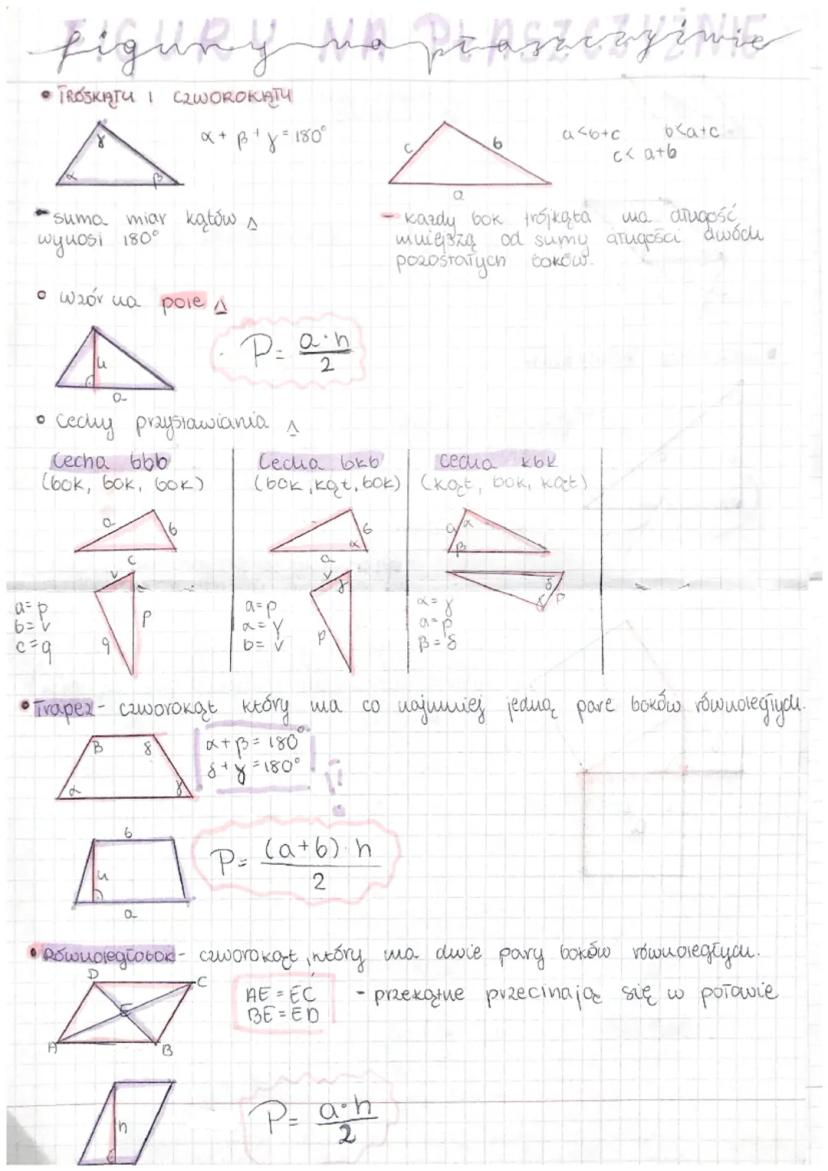 FIGURY NA PŁASZCZYŹNIE
figury na płaszczyźnie
• TRÓJKĄTY I CZWOROKĄTY
γ
α β
α + β + γ = 180°
c b
a
a<b+c b<a+c
c< a+b
- suma miar kątów △
wynosi 180°
- każdy bok trójkąta ma długość
mniejszą od sumy długości dwóch
pozostałych boków.
• wzór na pole △
h
a
P= a·h/2
• cechy przystawiania △
Cecha bbb
(bok, bok, bok)
a b
c
v
p
q
a=p
b=v
c=q
Cecha bkb
(bok, kąt, bok)
b
α
a
v γ
p
a=p
α=γ
b=v
cecha kbk
(kąt, bok, kąt)
a α
β
δ
γ p
α=γ
a=p
β=δ
• Trapez - czworokąt który ma co najmniej jedną pare boków równoległych.
β δ
α γ
α+β=180°
δ+γ=180°
!
b
h
a
P= (a+b)·h/2
• Równoległobok - czworokąt, który ma dwie pary boków równoległych.
D C
E
A B
AE=EC
BE=ED
- przekątne przecinają się w połowie
h
P= a·h/2